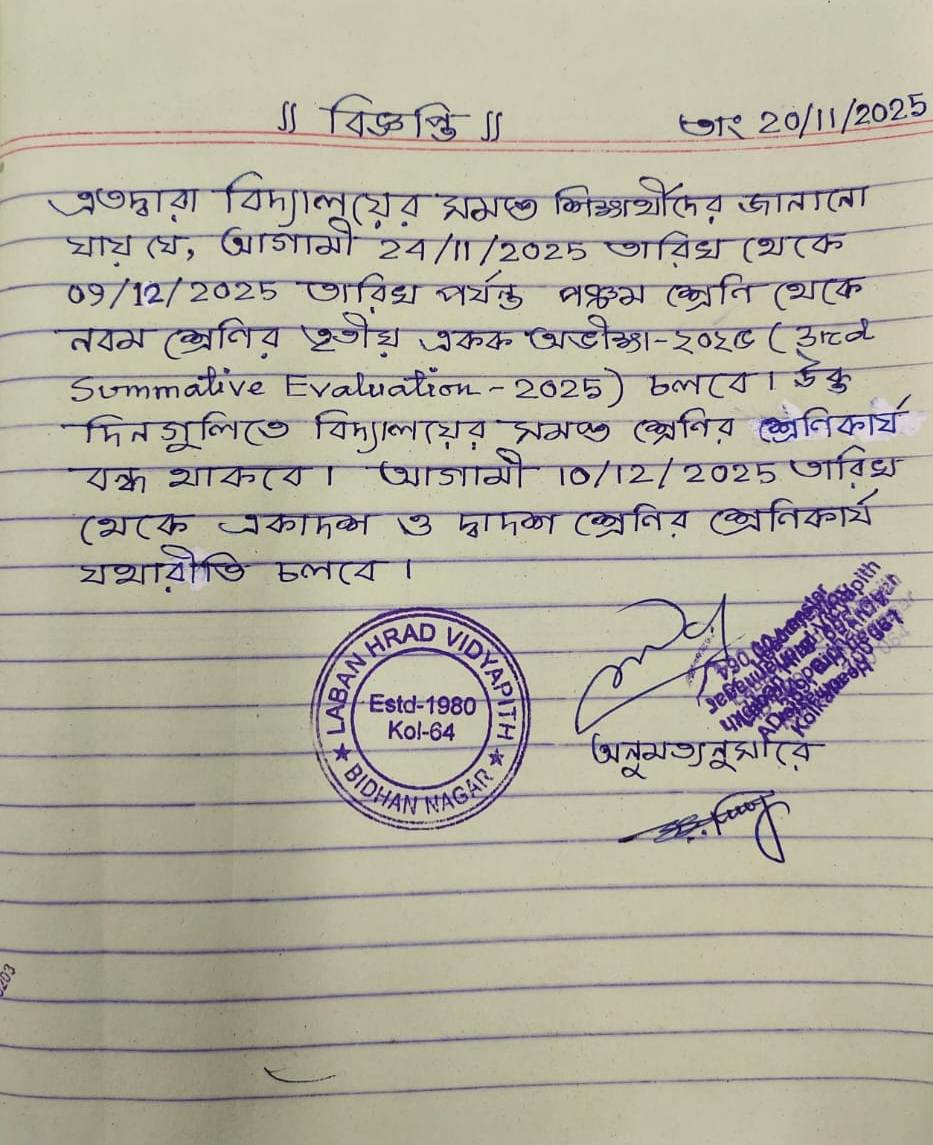 ॥ বিজ্ঞপ্তি ॥ তাং 20/11/2025
এতদ্বারা বিদ্যালয়ের সমস্ত শিক্ষার্থীদের জানানো
যায় যে, আগামী 24/11/2025 তারিখ থেকে
09/12/2025 তারিখ পর্যন্ত পঞ্চম শ্রেণি থেকে
নবম শ্রেণির তৃতীয় একক অভীক্ষা-২০২৫ (3rd
Summative Evaluation - 2025) চলবে। উক্ত
দিনগুলিতে বিদ্যালয়ের সমস্ত শ্রেণির শ্রেণিকার্য
বন্ধ থাকবে। আগামী 10/12/2025 তারিখ
থেকে একাদশ ও দ্বাদশ শ্রেণির শ্রেণিকার্য
যথারীতি চলবে।
LABAN HRAD VIDYAPITH
Estd-1980
Kol-64
BIDHAN NAGAR
অনুমত্যনুসারে